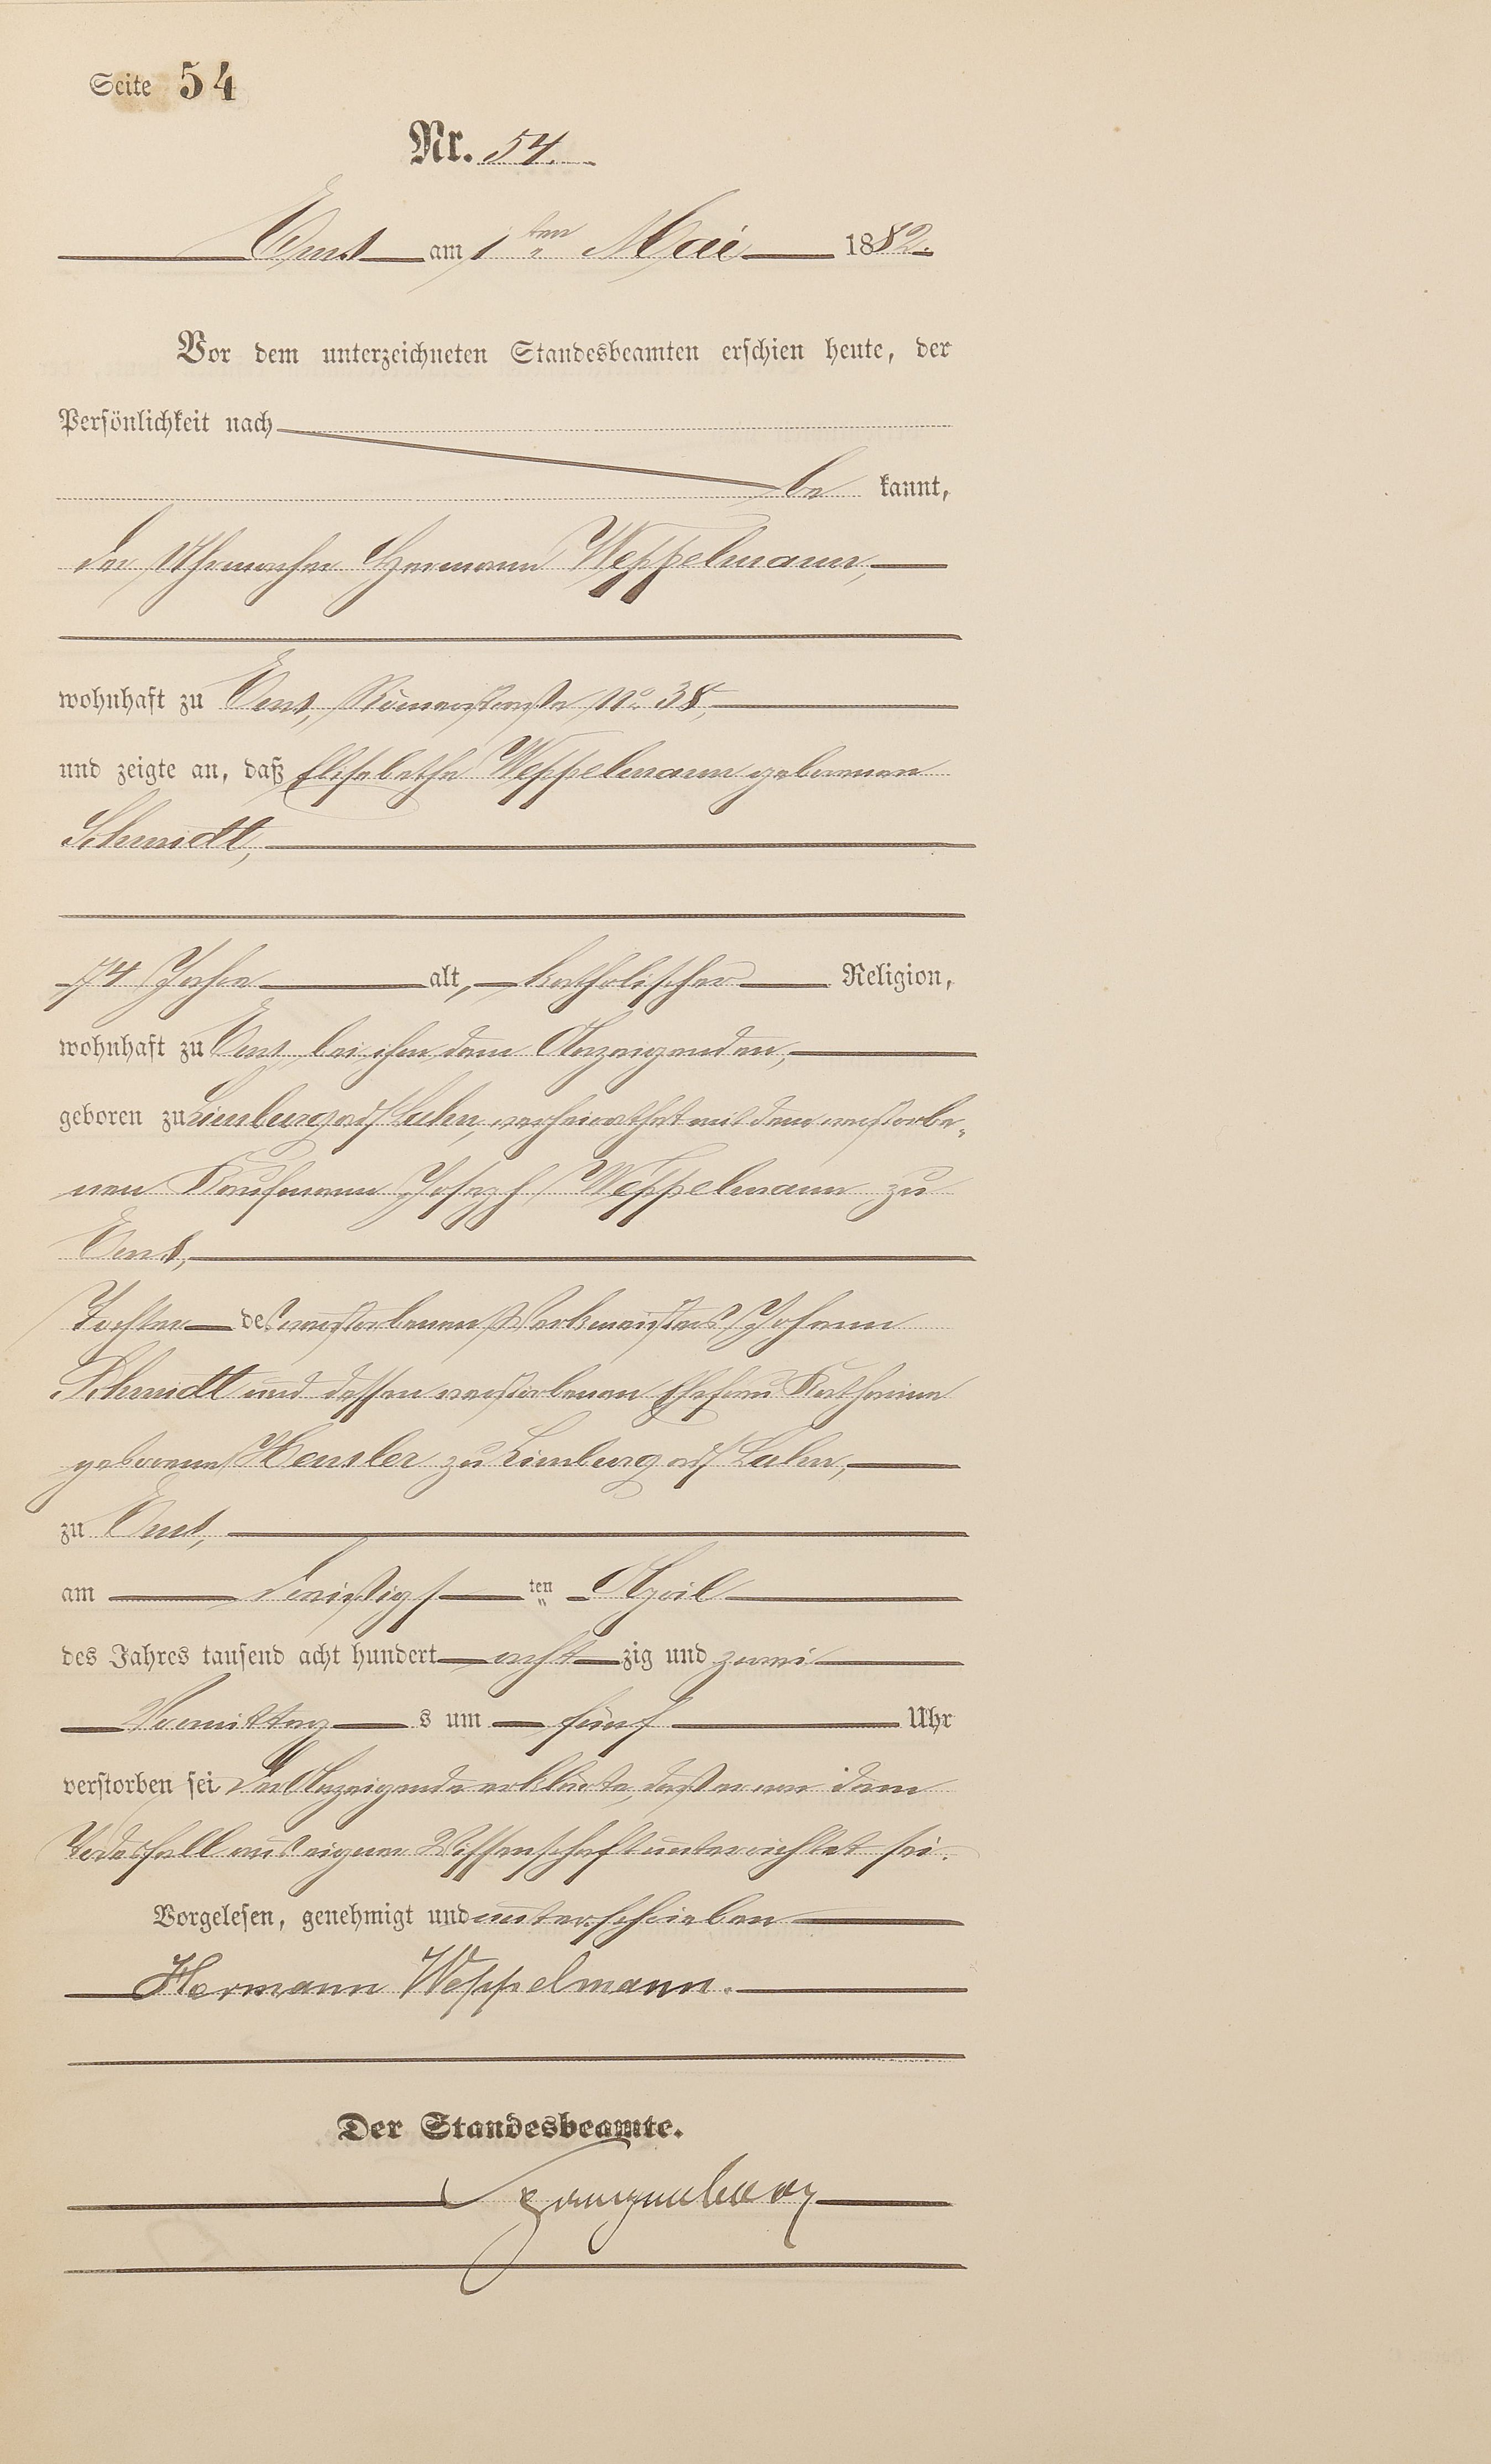 Seite 54
Nr. 54.
Ems am 1ten Mai 1882.
Vor dem unterzeichneten Standesbeamten erschien heute, der
Persönlichkeit nach
be kannt,
der Uhrmacher Hermann Weppelmann,
wohnhaft zu Ems, Römerstraße No. 38,
und zeigte an, daß Elisabetha Weppelmann geborenen
Schmidt,
74 Jahre alt, katholischer Religion,
wohnhaft zu Ems bei ihm dem Anzeigenden,
geboren zu Limburg a/d Lahn, verheirathet mit dem verstorbe-
nen Kaufmann Joseph Weppelmann zu
Ems,
Tochter des verstorbenen Werkmeisters Johann
Schmidt und dessen verstorbenen Ehefrau Katharina
geborene Hensler zu Limburg a/d Lahn,
zu Ems,
am dreißigsten April
des Jahres tausend acht hundert acht zig und zwei
Vormittag s um fünf Uhr
verstorben sei Der Anzeigende erklärte, daß er von dem
Todesfall aus eigner Wissenschaft unterrichtet sei.
Vorgelesen, genehmigt und unterschrieben
Hermann Weppelmann.
Der Standesbeamte.